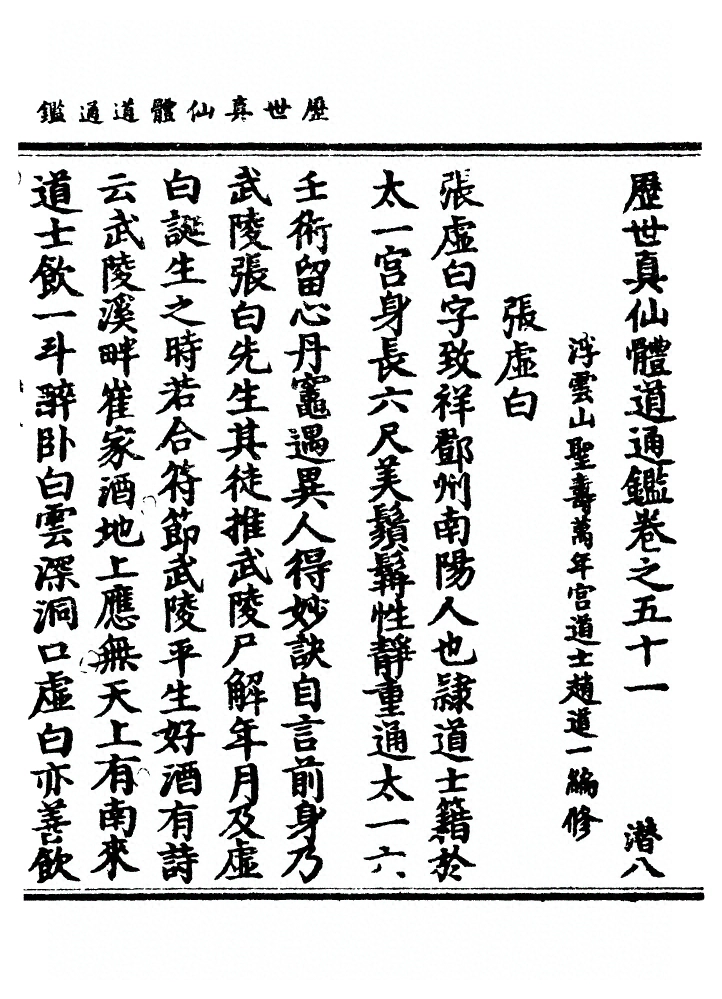 歷世真仙體道通鑑
歷世真仙體道通鑑卷之五十一 潛八
浮雲山聖壽萬年宫道士趙道一編修
張虛白
張虛白字致祥鄧州南陽人也隷道士籍於
太一宫身長六尺美鬚髯性靜重通太一六
壬術留心丹竈遇異人得妙訣自言前身乃
武陵張白先生其徒推武陵尸解年月及虛
白誕生之時若合符節武陵平生好酒有詩
云武陵溪畔崔家酒地上應無天上有南來
道士飲一斗醉卧白雲深洞口虛白亦善飲